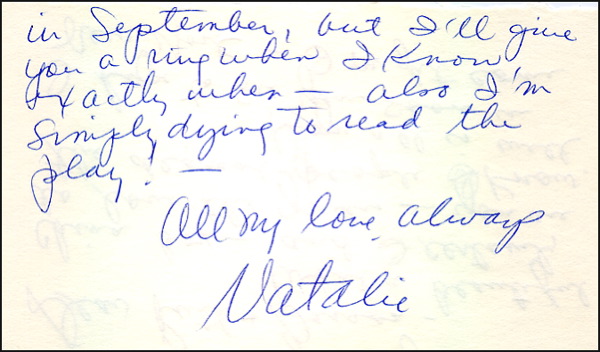 in September, but I'll give
you a ring when I know
exactly when — also I'm
simply dying to read the
play! —
All my love, always
Natalie